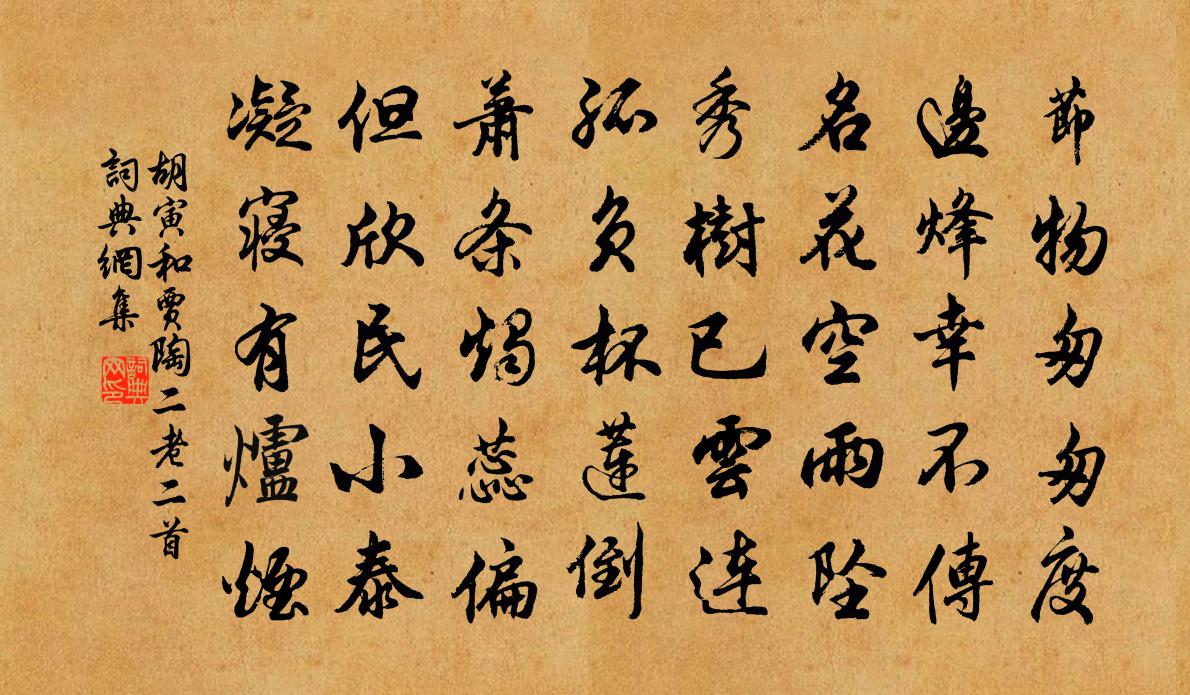 節物匆匆度
邊烽幸不傳
名花空雨墜
秀樹已雲連
孤負杯蓮倒
蕭条燭蕊偏
但欣民小泰
凝寢有爐煙
胡寅和賈陶二老二首
詞典網集
詞典网印